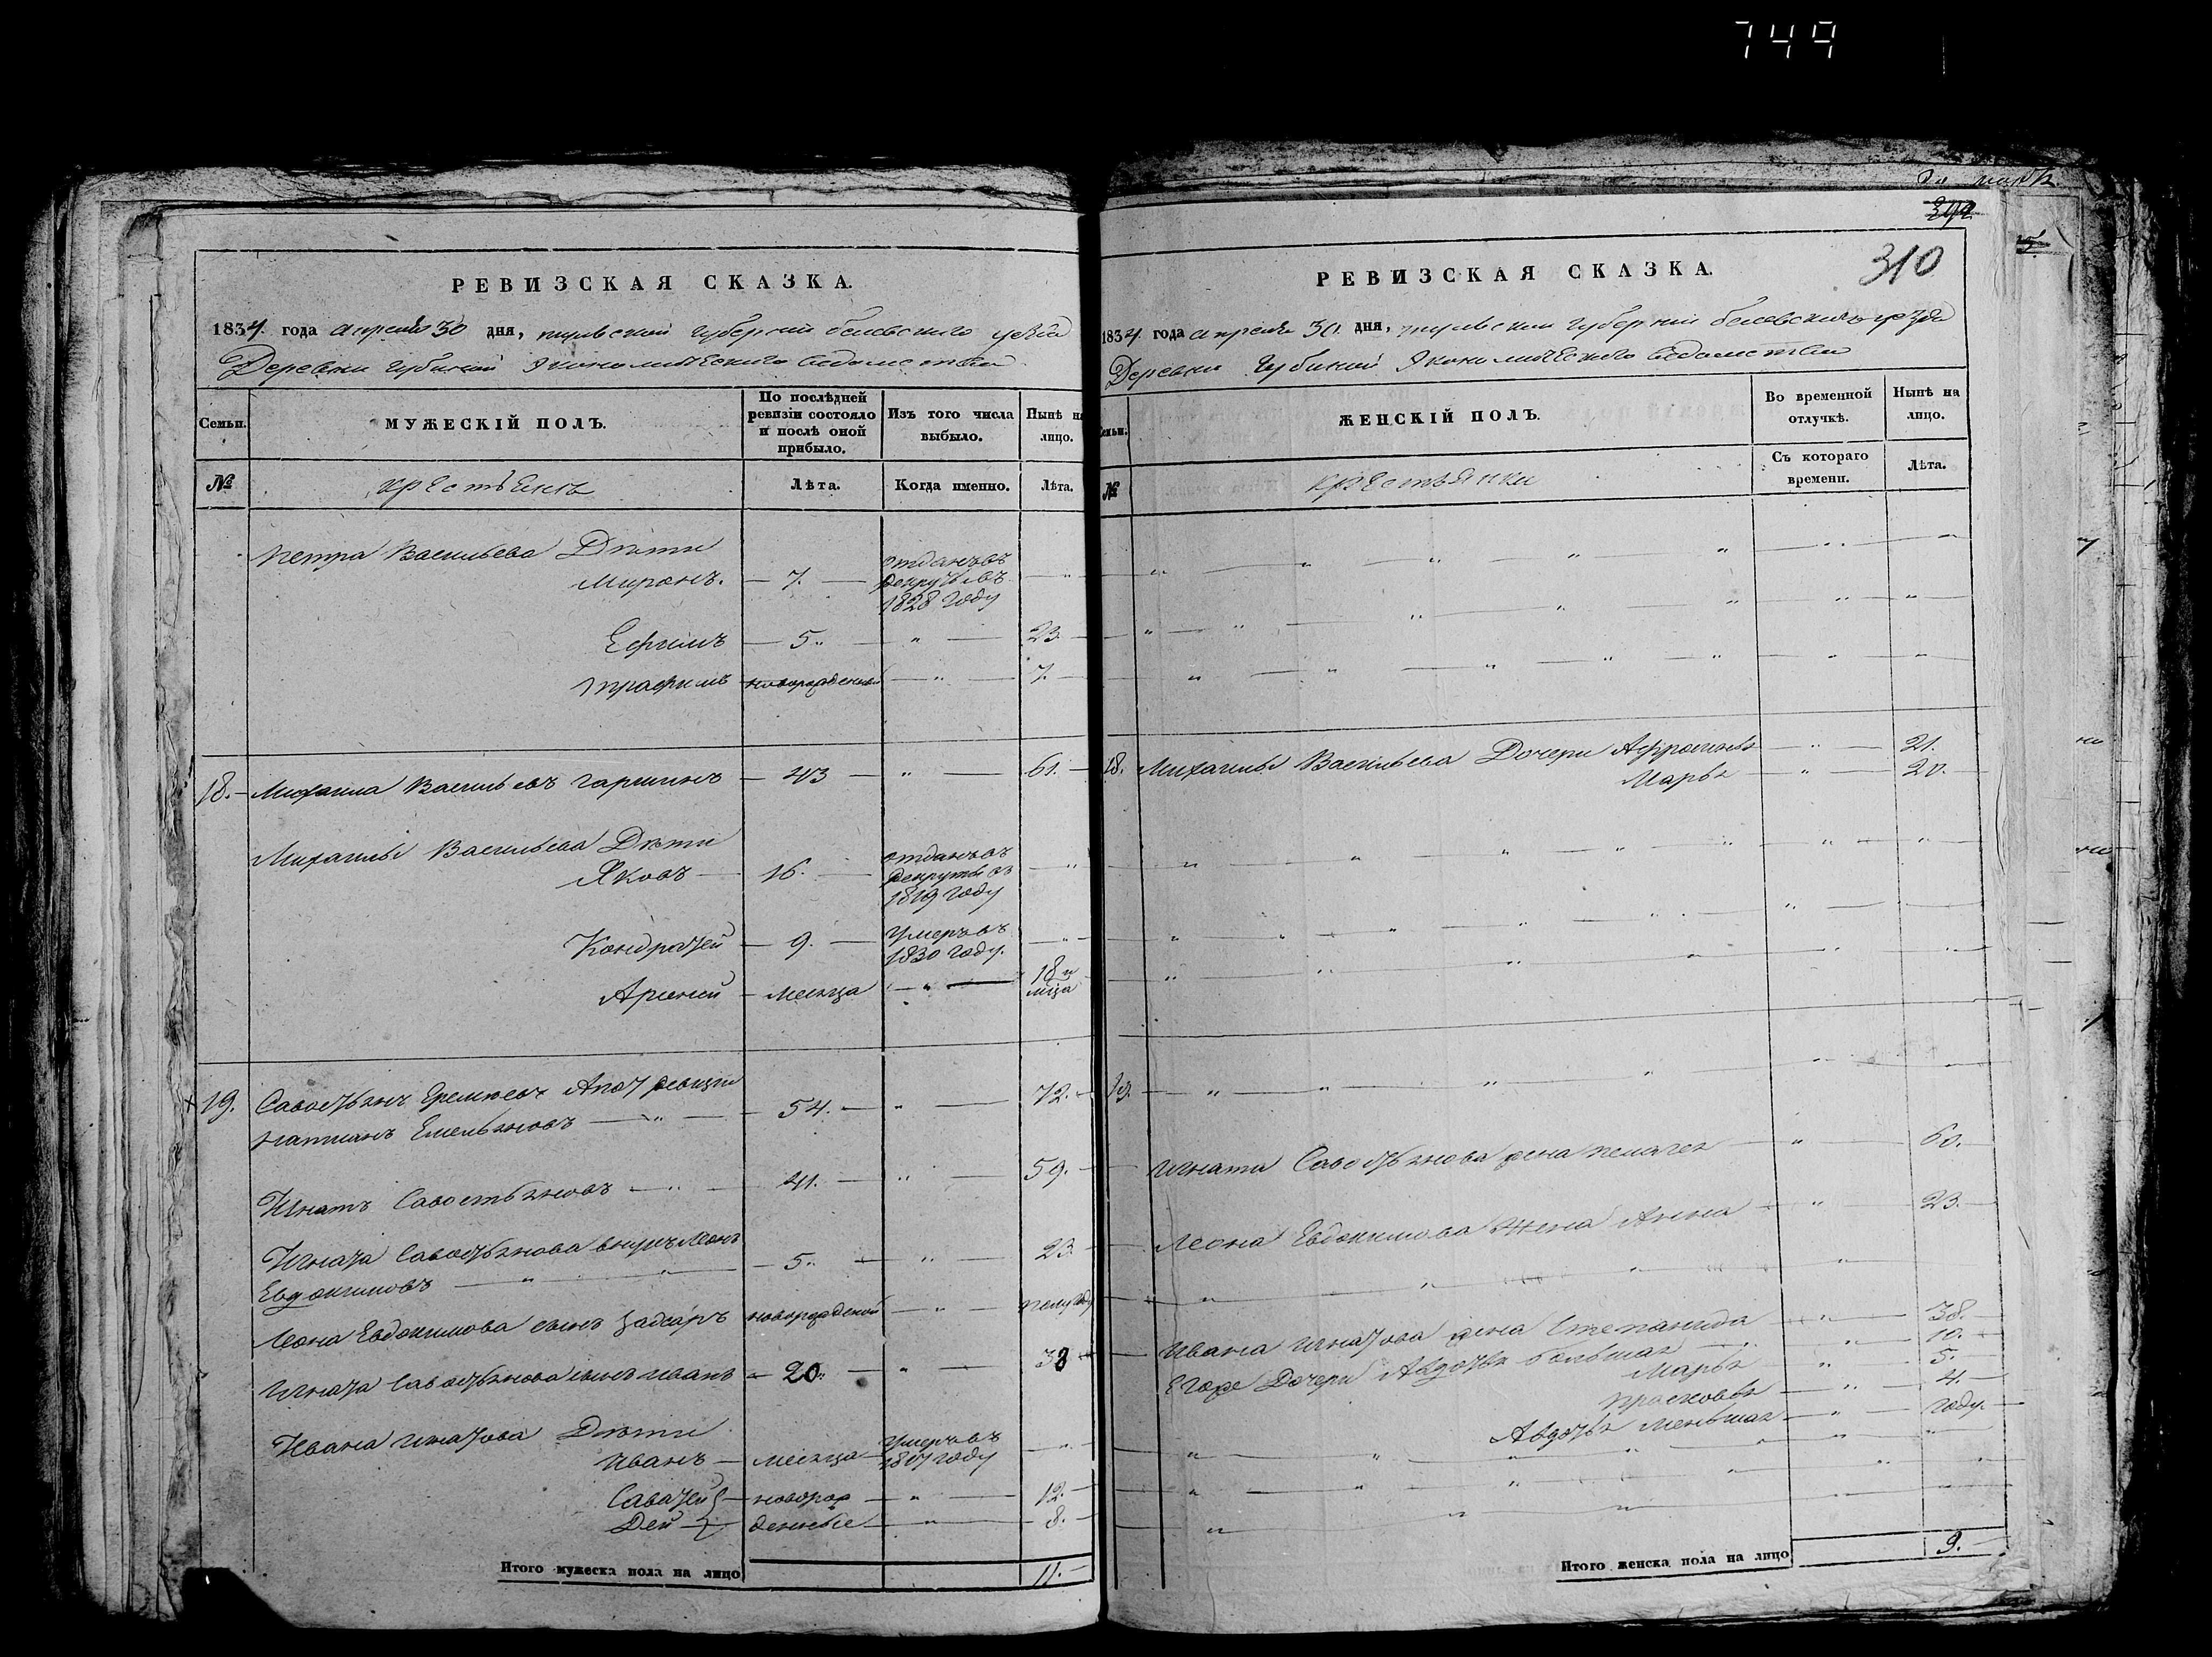 749
РЕВИЗСКАЯ СКАЗКА.
1834. года апреля 30 дня, тульской губернии белевского уезда
Деревни Губиной Экономического ведомства
Семьи.
МУЖЕСКІЙ ПОЛЪ.
По послѣдней ревизіи состояло и послѣ оной прибыло.
Изъ того числа выбыло.
Нынѣ на лицо.
№
крестьянъ
Лѣта.
Когда именно.
Лѣта.
Петра Васильева Дѣти
Миронъ. — 7. — отданъ въ рекруты въ 1828 году — "
Ефимъ — 5 " — " — 23. —
Трафимъ новорожденный — " — 7. —
18. — Михаила Васильевъ гаршинъ — 43 — " — 61. —
Михаилы Васильева Дѣти
Яковъ — 16. — отданъ въ рекруты въ 1819 году — "
Кондратей — 9. — умеръ въ 1830 году. — "
Арсеней — месяца — " — 18 и мѣца
19. Савостьянъ Еремѣевъ А по 7 ревизіи
Емельяновъ — " — 54. — " — 72. —
Игнатъ Савостьяновъ — " — 41. — " — 59. —
Игната Савостьянова внукъ Леонъ
Евдокимовъ — " — 5 " — " — 23. —
Леона Евдокимова сынъ новорожденой — "
Игната Савостьянова сынъ иванъ — 20 " — " — 38
Ивана игнатова Дѣти
Иванъ — месяца — умеръ въ году — "
Саватей — новорож — " — 12. —
Дей — денные — " — 8. —
Итого мужеска пола на лицо
11. —
310
РЕВИЗСКАЯ СКАЗКА.
1834. года апреля 30. дня, тульской губерніи белевского уезда
Деревни Губиной Экономического ведомства
Семьи.
ЖЕНСКІЙ ПОЛЪ.
Во временной отлучкѣ.
Нынѣ на лицо.
№
крестьянки
Съ котораго времени.
Лѣта.
18. Михаилы Васильева Дочери Афросинья — " — 21.
Марья — " — 20. —
19. — " — " — "
Игната Савостьянова жена пелагея — " — 60. —
Леона Евдокимова Жена Анна — " — 23. —
Ивана игнатова жена Степанида — " — 38. —
Его Дочери Авдотья большая — " — 10. —
Марья " — 5. —
прасковья — " — 4. —
Авдотья Меньшая — " — году. —
Итого женска пола на лицо
9. —